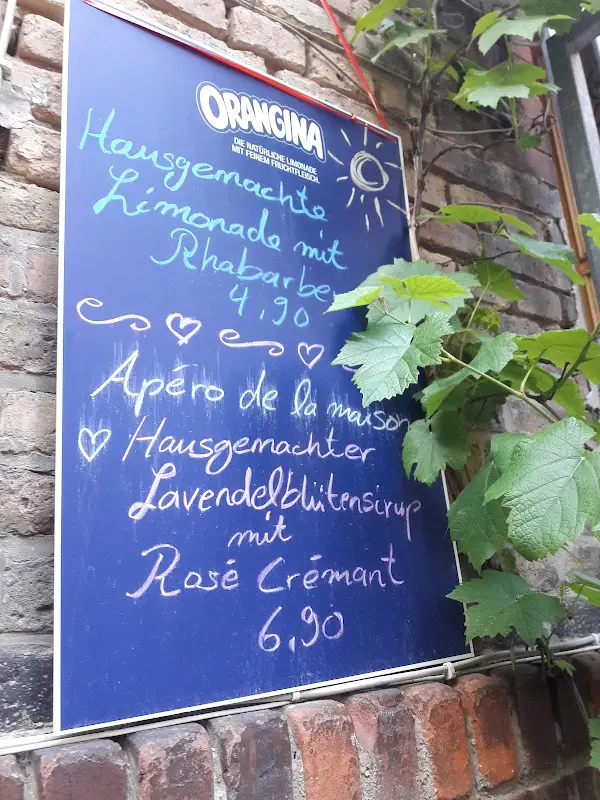 ORANGINA
DIE NATÜRLICHE LIMONADE
MIT FEINEM FRUCHTFLEISCH.
Hausgemachte
Limonade mit
Rhabarber
4,90
Apéro de la maison
Hausgemachter
Lavendelblütensirup
mit
Rosé Crémant
6,90